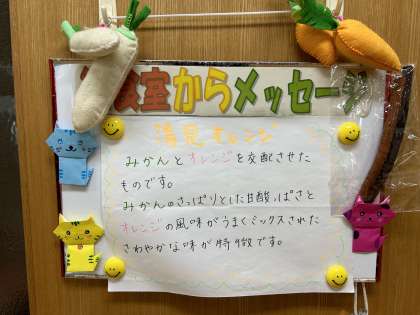 室からメッセー
湯見オレンジ
みかんとオレンジを交配させた
ものです。
みかんのさっぱりとした甘酸っぱさと
オレンジの風味がうまくミックスされた
さわやかな味が特徴です。